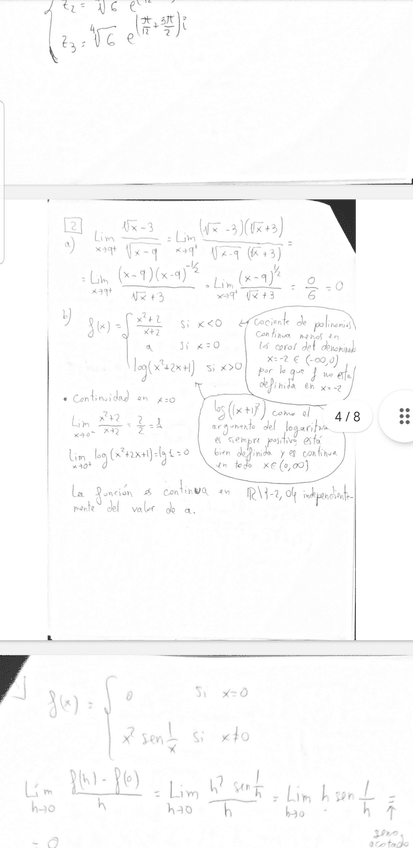 z₂ = ⁴√6 e
z₃ = ⁴√6 e^(π/12 + 3π/2)i
2
a) Lim x→9⁺ (√x − 3)/√(x−9) = Lim x→9⁺ (√x − 3)(√x + 3)/(√(x−9) (√x + 3)) =
= Lim x→9⁺ (x−9)(x−9)^(−1/2)/(√x + 3) = Lim x→9⁺ (x−9)^(1/2)/(√x + 3) = 0/6 = 0
b) f(x) = { (x²+2)/(x+2) si x<0
a si x=0
log(x²+2x+1) si x>0
cociente de polinomios
continua menos en
los ceros del denominado
x=-2 ∈ (-∞,0)
por lo que f no está
definida en x=-2
• Continuidad en x=0
Lim x→0⁻ (x²+2)/(x+2) = 2/2 = 1
Lim x→0⁺ log(x²+2x+1) = log 1 = 0
log(|x+1|)² como el
argumento del logaritmo
es siempre positivo está
bien definida y es continua
en todo x∈(0,∞)
4/8
La función es continua en ℝ\{-2,0} independiente-
mente del valor de a.
f(x) = { 0 si x=0
x² sen 1/x si x≠0
Lim h→0 (f(h) − f(0))/h = Lim h→0 (h² sen 1/h)/h = Lim h→0 h sen 1/h =
↑
seno
acotado
= 0